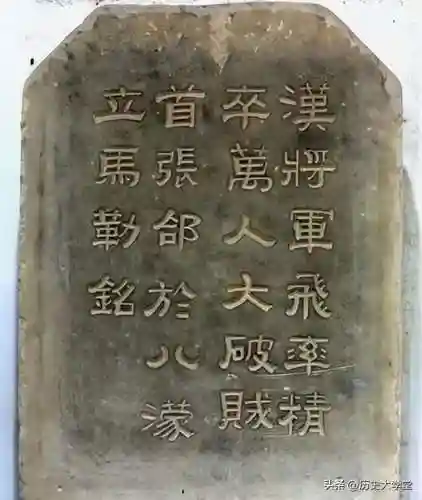 漢將軍飛率精
卒萬人大破賊
首張郃於八濛
立馬勒銘
头条 @历史大学堂